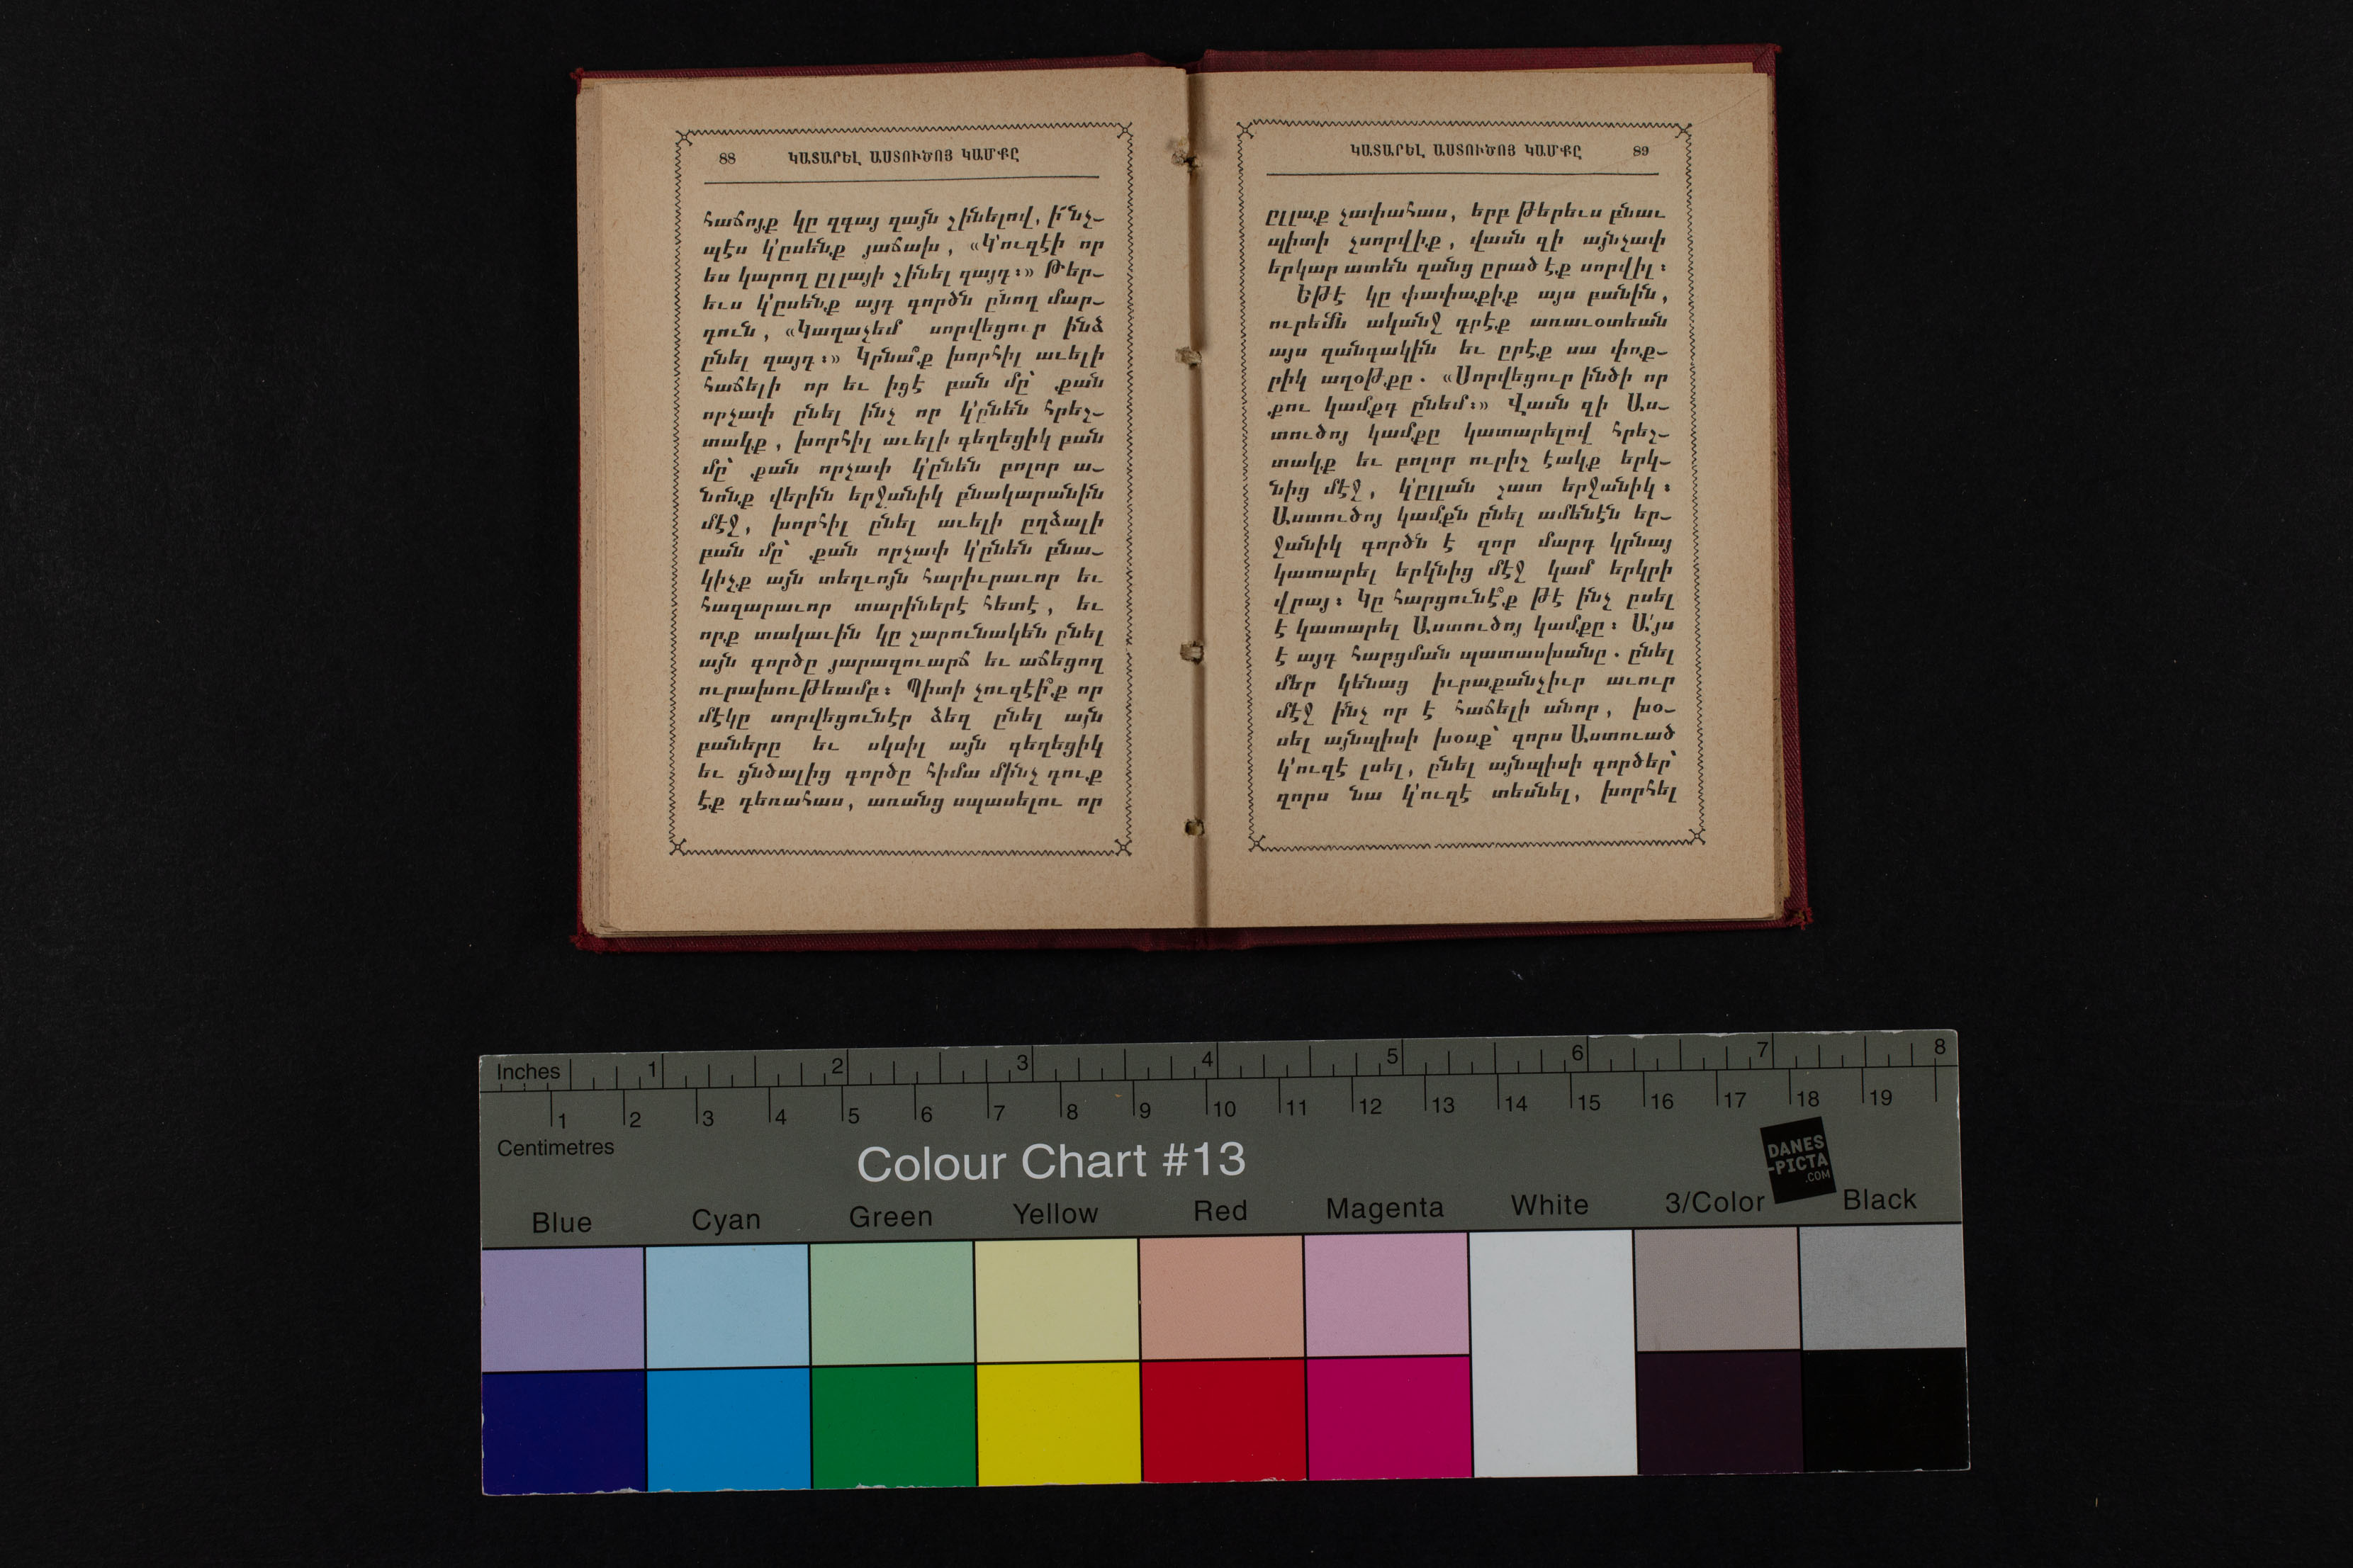 88 ԿԱՏԱՐԵԼ ԱՍՏՈՒԾՈՅ ԿԱՄՔԸ
հաճոյք կը զգայ զայն շինելով, ի՞նչ-
պէս կ'ըսենք յաճախ, «Կ'ուզէի որ
ես կարող ըլլայի շինել զայդ։» Թեր-
եւս կ'ըսենք այդ գործն ընող մար-
դուն, «Կաղաչեմ սորվեցուր ինձ
ընել զայդ։» Կրնա՞ք խորհիլ աւելի
հաճելի որ եւ իցէ բան մը՝ քան
որչափ ընել ինչ որ կ'ընեն հրեշ-
տակք, խորհիլ աւելի գեղեցիկ բան
մը՝ քան որչափ կ'ընեն բոլոր ա-
նոնք վերին երջանիկ բնակարանին
մէջ, խորհիլ ընել աւելի ըղձալի
բան մը՝ քան որչափ կ'ընեն բնա-
կիչք այն տեղւոյն հարիւրաւոր եւ
հազարաւոր տարիներէ հետէ, եւ
որք տակաւին կը շարունակեն ընել
այն գործը յարազուարճ եւ աճեցող
ուրախութեամբ։ Պիտի չուզէի՞ք որ
մէկը սորվեցունէր ձեզ ընել այն
բաները եւ սկսիլ այն գեղեցիկ
եւ ցնծալից գործը հիմա մինչ դուք
էք դեռահաս, առանց սպասելու որ
ԿԱՏԱՐԵԼ ԱՍՏՈՒԾՈՅ ԿԱՄՔԸ 89
ըլլաք չափահաս, երբ թերեւս բնաւ
պիտի չսորվիք, վասն զի այնչափ
երկար ատեն զանց ըրած էք սորվիլ։
Եթէ կը փափաքիք այս բանին,
ուրեմն ականջ դրէք առաւօտեան
այս զանգակին եւ ըրէք սա փոք-
րիկ աղօթքը. «Սորվեցուր ինծի որ
քու կամքդ ընեմ։» Վասն զի Աս-
տուծոյ կամքը կատարելով հրեշ-
տակք եւ բոլոր ուրիշ էակք երկ-
նից մէջ, կ'ըլլան շատ երջանիկ։
Աստուծոյ կամքն ընել ամենէն եր-
ջանիկ գործն է զոր մարդ կրնայ
կատարել երկնից մէջ կամ երկրի
վրայ։ Կը հարցունէ՞ք թէ ինչ ըսել
է կատարել Աստուծոյ կամքը։ Ա՛յս
է այդ հարցման պատասխանը. ընել
մեր կենաց իւրաքանչիւր աւուր
մէջ ինչ որ է հաճելի անոր, խօ-
սել այնպիսի խօսք՝ զորս Աստուած
կ'ուզէ լսել, ընել այնպիսի գործեր՝
զորս նա կ'ուզէ տեսնել, խորհել
Inches 1 2 3 4 5 6 7 8
1 2 3 4 5 6 7 8 9 10 11 12 13 14 15 16 17 18 19
Centimetres
Colour Chart #13
DANES
-PICTA
.COM
Blue Cyan Green Yellow Red Magenta White 3/Color Black